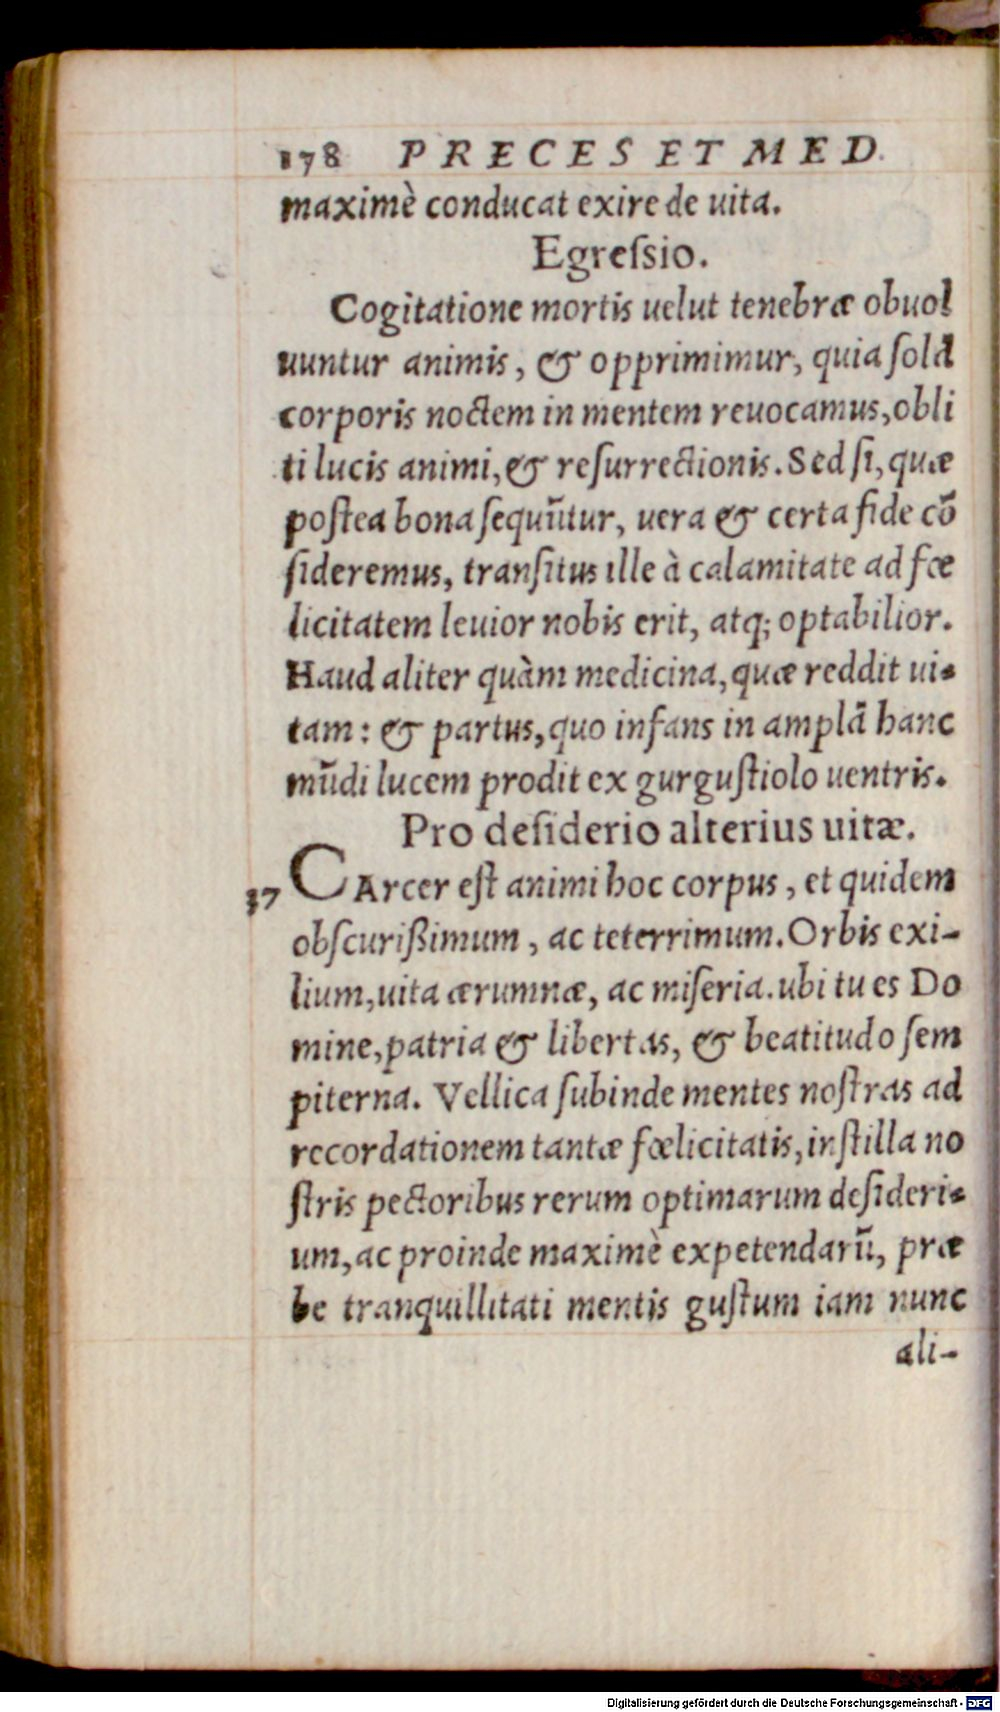 178 PRECES ET MED.
maximè conducat exire de uita.
Egreſsio.
Cogitatione mortis uelut tenebræ obuol
uuntur animis, & opprimimur, quia solã
corporis noctem in mentem reuocamus, obli
ti lucis animi, & reſurrectionis. Sed ſi, quæ
poſtea bona ſequũtur, uera & certa fide cõ
ſideremus, tranſitus ille à calamitate ad fœ
licitatem leuior nobis erit, atq; optabilior.
Haud aliter quàm medicina, quæ reddit ui-
tam: & partus, quo infans in amplã hanc
mũdi lucem prodit ex gurguſtiolo uentris.
Pro deſiderio alterius uitæ.
37 CArcer eſt animi hoc corpus, et quidem
obſcurißimum, ac teterrimum. Orbis exi-
lium, uita ærumnæ, ac miſeria. ubi tu es Do
mine, patria & libertas, & beatitudo ſem
piterna. Vellica ſubinde mentes noſtras ad
recordationem tantæ fœlicitatis, inſtilla no
ſtris pectoribus rerum optimarum deſideri-
um, ac proinde maximè expetendarũ, præ
be tranquillitati mentis guſtum iam nunc
ali-
Digitalisierung gefördert durch die Deutsche Forschungsgemeinschaft - DFG